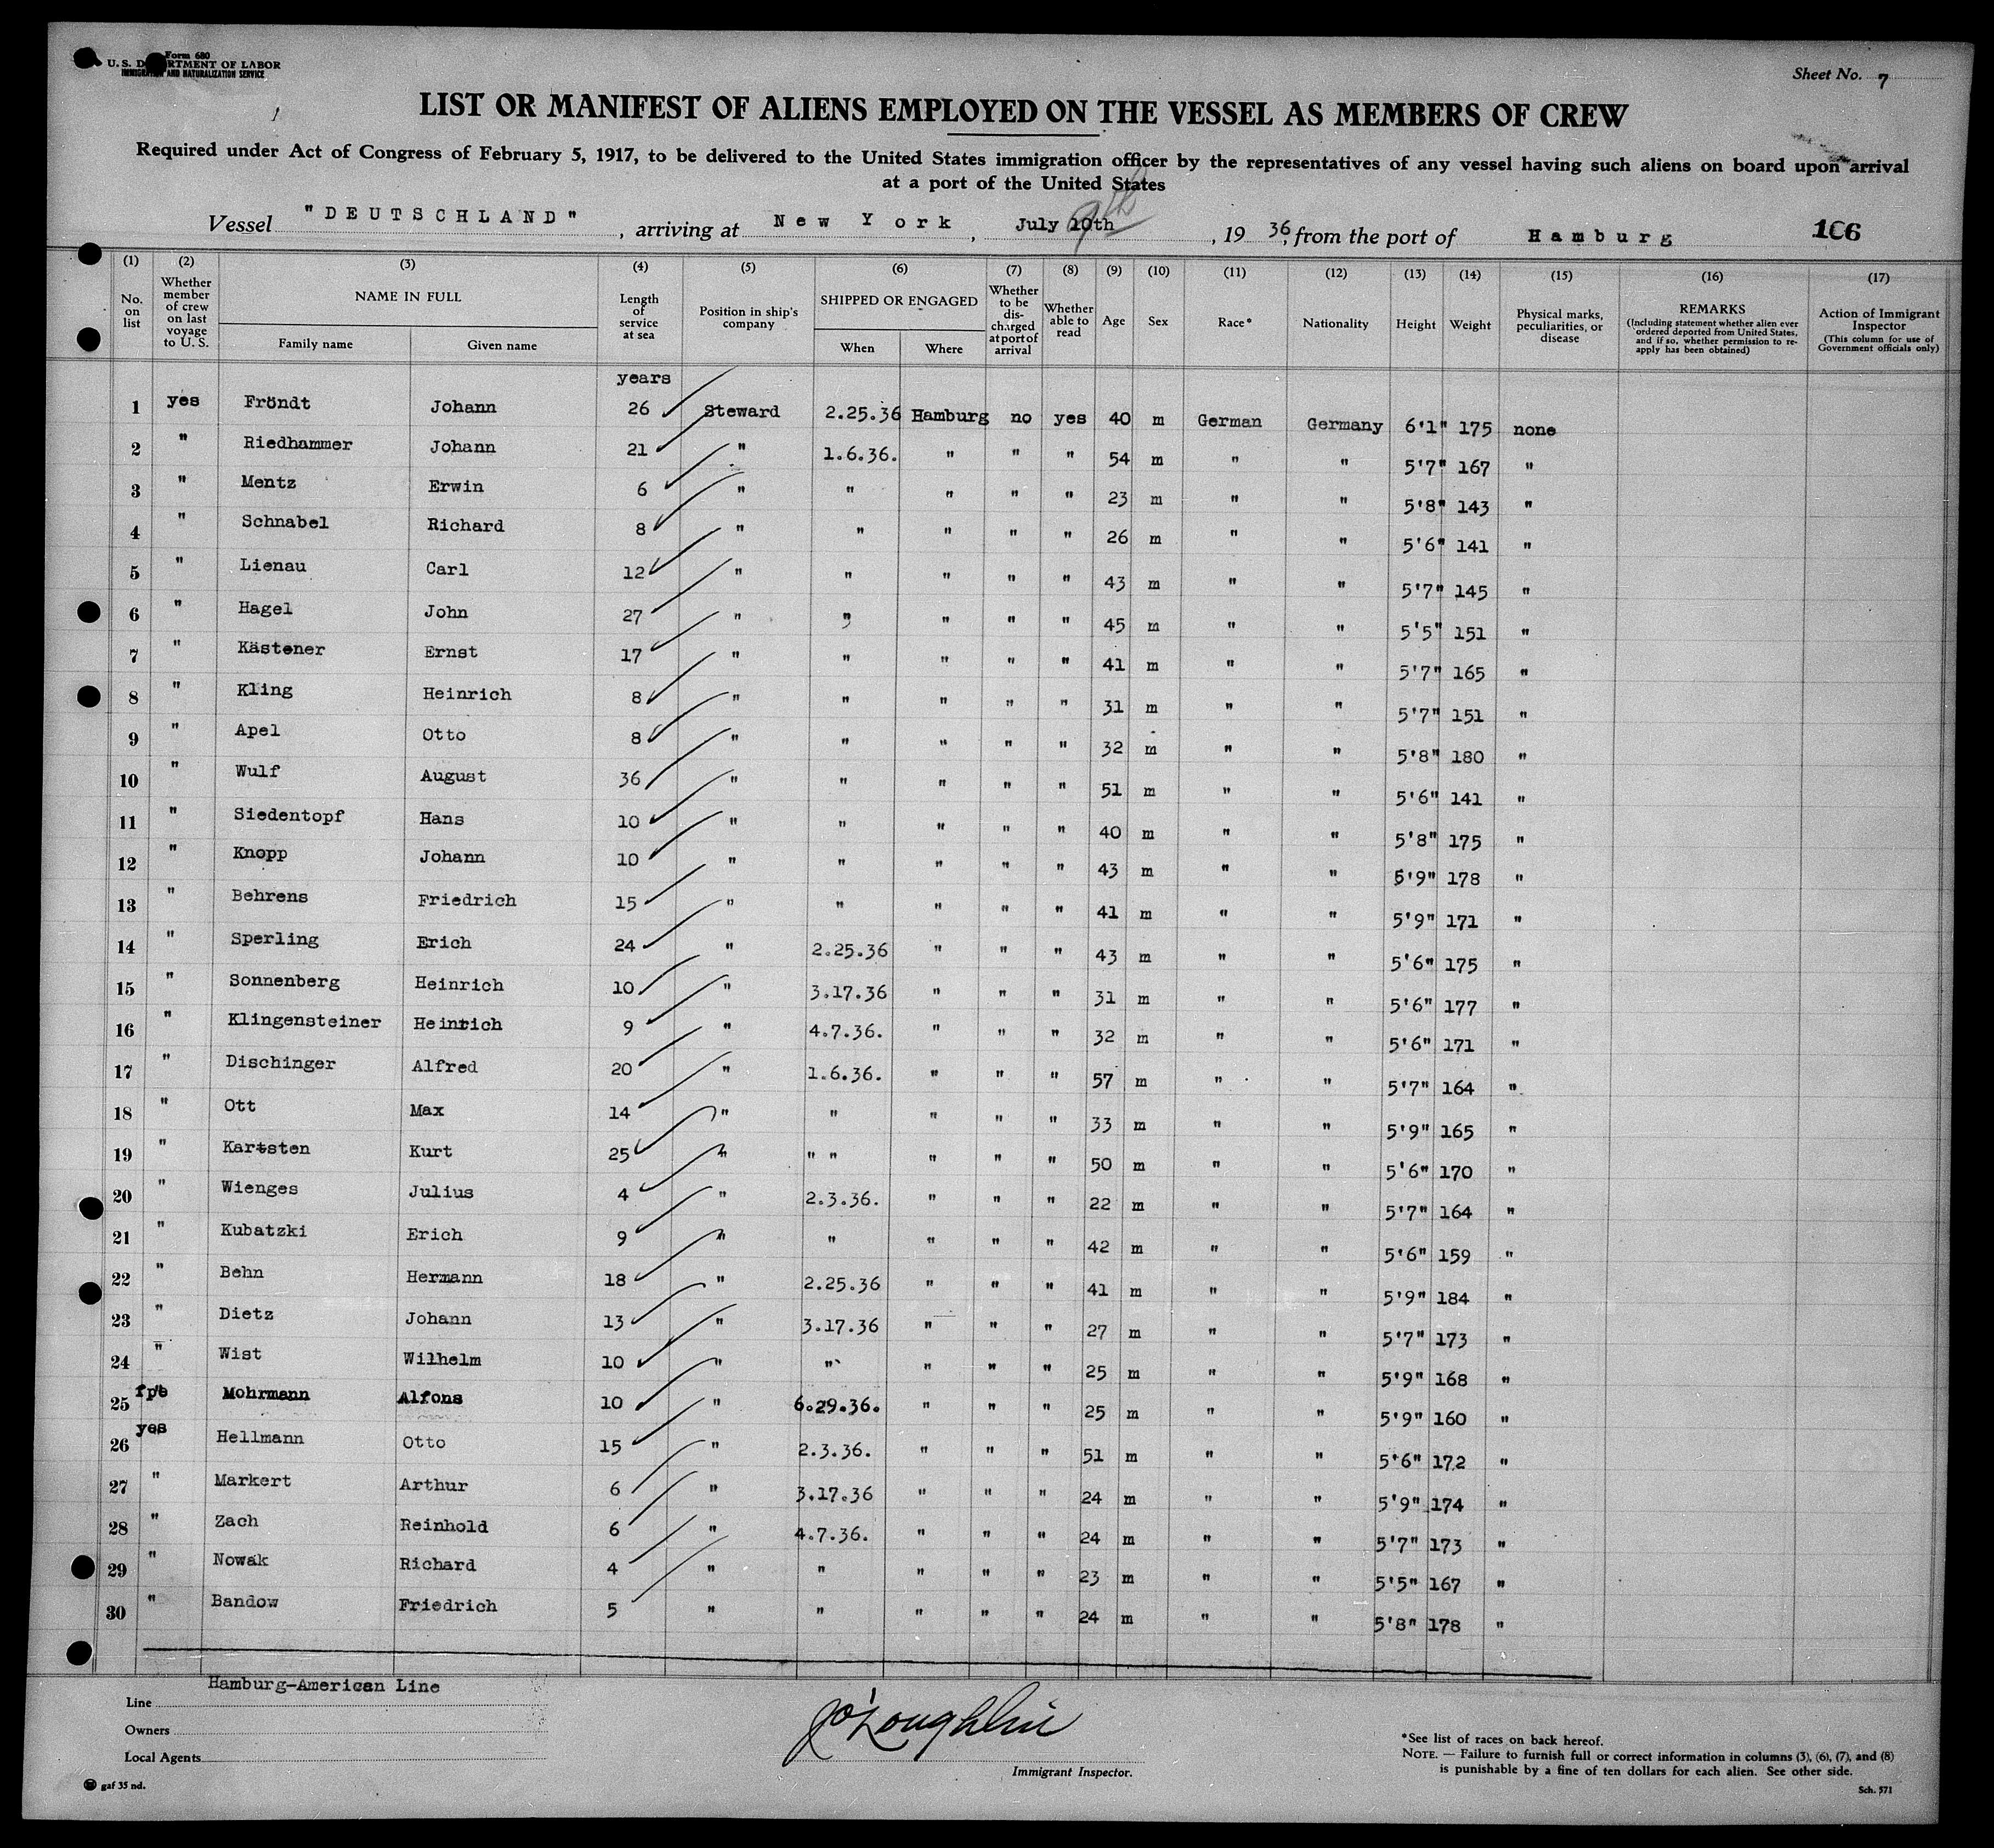 Form 680
U. S. DEPARTMENT OF LABOR
IMMIGRATION AND NATURALIZATION SERVICE
Sheet No. 7
LIST OR MANIFEST OF ALIENS EMPLOYED ON THE VESSEL AS MEMBERS OF CREW
Required under Act of Congress of February 5, 1917, to be delivered to the United States immigration officer by the representatives of any vessel having such aliens on board upon arrival
at a port of the United States
Vessel "DEUTSCHLAND", arriving at New York, July 10th 9th, 1936, from the port of Hamburg 106
(1) (2) (3) (4) (5) (6) (7) (8) (9) (10) (11) (12) (13) (14) (15) (16) (17)
No. on list | Whether member of crew on last voyage to U. S. | NAME IN FULL Family name Given name | Length of service at sea | Position in ship's company | SHIPPED OR ENGAGED When Where | Whether to be discharged at port of arrival | Whether able to read | Age | Sex | Race* | Nationality | Height | Weight | Physical marks, peculiarities, or disease | REMARKS (Including statement whether alien ever ordered deported from United States, and if so, whether permission to re-apply has been obtained) | Action of Immigrant Inspector (This column for use of Government officials only)
years
1 yes Fröndt Johann 26 Steward 2.25.36 Hamburg no yes 40 m German Germany 6'1" 175 none
2 " Riedhammer Johann 21 " 1.6.36. " " " 54 m " " 5'7" 167 "
3 " Mentz Erwin 6 " " " " " 23 m " " 5'8" 143 "
4 " Schnabel Richard 8 " " " " " 26 m " " 5'6" 141 "
5 " Lienau Carl 12 " " " " " 43 m " " 5'7" 145 "
6 " Hagel John 27 " " " " " 45 m " " 5'5" 151 "
7 " Kästener Ernst 17 " " " " " 41 m " " 5'7" 165 "
8 " Kling Heinrich 8 " " " " " 31 m " " 5'7" 151 "
9 " Apel Otto 8 " " " " " 32 m " " 5'8" 180 "
10 " Wulf August 36 " " " " " 51 m " " 5'6" 141 "
11 " Siedentopf Hans 10 " " " " " 40 m " " 5'8" 175 "
12 " Knopp Johann 10 " " " " " 43 m " " 5'9" 178 "
13 " Behrens Friedrich 15 " " " " " 41 m " " 5'9" 171 "
14 " Sperling Erich 24 " 2.25.36 " " " 43 m " " 5'6" 175 "
15 " Sonnenberg Heinrich 10 " 3.17.36 " " " 31 m " " 5'6" 177 "
16 " Klingensteiner Heinrich 9 " 4.7.36. " " " 32 m " " 5'6" 171 "
17 " Dischinger Alfred 20 " 1.6.36. " " " 57 m " " 5'7" 164 "
18 " Ott Max 14 " " " " " 33 m " " 5'9" 165 "
19 " Kartsten Kurt 25 " " " " " " 50 m " " 5'6" 170 "
20 " Wienges Julius 4 " 2.3.36. " " " 22 m " " 5'7" 164 "
21 " Kubatzki Erich 9 " " " " " 42 m " " 5'6" 159 "
22 " Behn Hermann 18 " 2.25.36 " " " 41 m " " 5'9" 184 "
23 " Dietz Johann 13 " 3.17.36 " " " 27 m " " 5'7" 173 "
24 " Wist Wilhelm 10 " " " " " 25 m " " 5'9" 168 "
25 Mohrmann Alfons 10 " 6.29.36. " " " 25 m " " 5'9" 160 "
26 yes Hellmann Otto 15 " 2.3.36. " " " 51 m " " 5'6" 172 "
27 " Markert Arthur 6 " 3.17.36 " " " 24 m " " 5'9" 174 "
28 " Zach Reinhold 6 " 4.7.36. " " " 24 m " " 5'7" 173 "
29 " Nowak Richard 4 " " " " " 23 m " " 5'5" 167 "
30 " Bandow Friedrich 5 " " " " " 24 m " " 5'8" 178 "
Line Hamburg-American Line
Owners
Local Agents
gaf 35 nd.
JO'Loughlin
Immigrant Inspector.
*See list of races on back hereof.
NOTE. — Failure to furnish full or correct information in columns (3), (6), (7), and (8)
is punishable by a fine of ten dollars for each alien. See other side.
Sch. 571